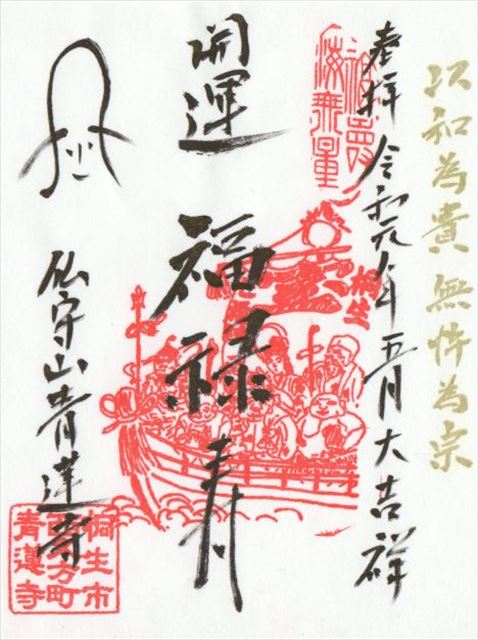 以和為貴 無忤為宗
奉拝 令和元年五月大吉祥
福寿海無量
桐生
開運 福禄寿
仏守山青蓮寺
桐生市
西方町
青蓮寺